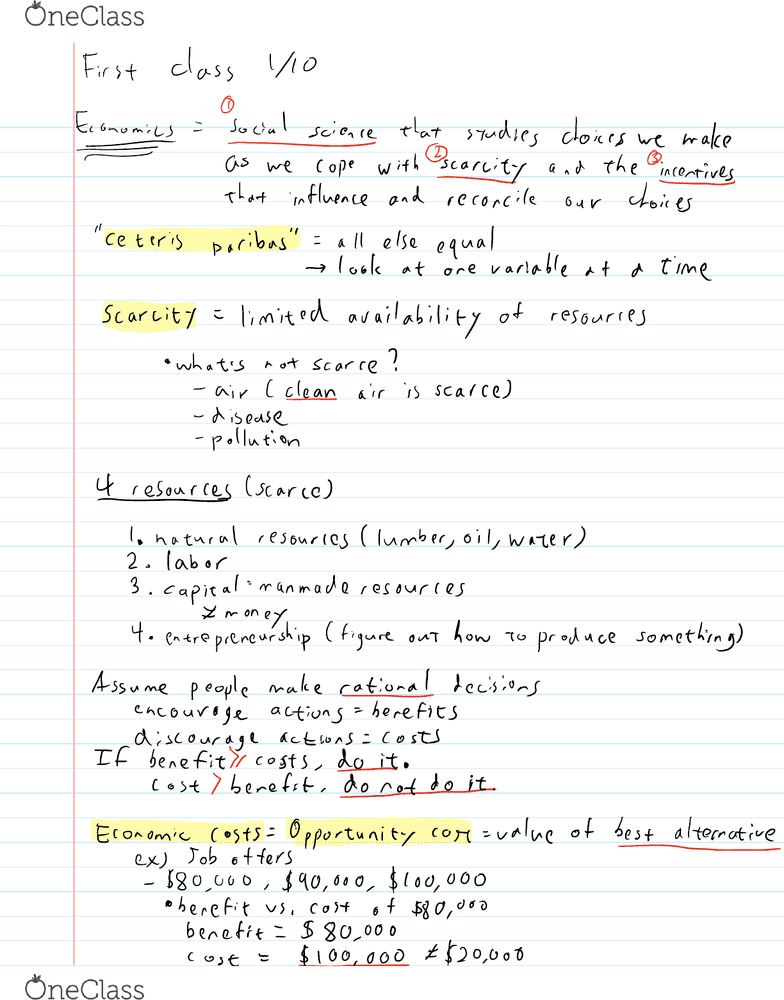 OneClass
First class 1/10
①
Economics = social science that studies choices we make
as we cope with ② scarcity and the ③ incentives
that influence and reconcile our choices
"ceteris paribas" = all else equal
→ look at one variable at a time
Scarcity = limited availability of resources
• what's not scarce?
- air (clean air is scarce)
- disease
- pollution
4 resources (scarce)
1. natural resources (lumber, oil, water)
2. labor
3. capital = manmade resources
≠ money
4. entrepreneurship (figure out how to produce something)
Assume people make rational decisions
encourage actions = benefits
discourage actions = costs
If benefit ≥ costs, do it.
cost > benefit, do not do it.
Economic costs = Opportunity cost = value of best alternative
ex) Job offers
- $80,000, $90,000, $100,000
• benefit vs. cost of $80,000
benefit = $80,000
cost = $100,000 ≠ $20,000
OneClass